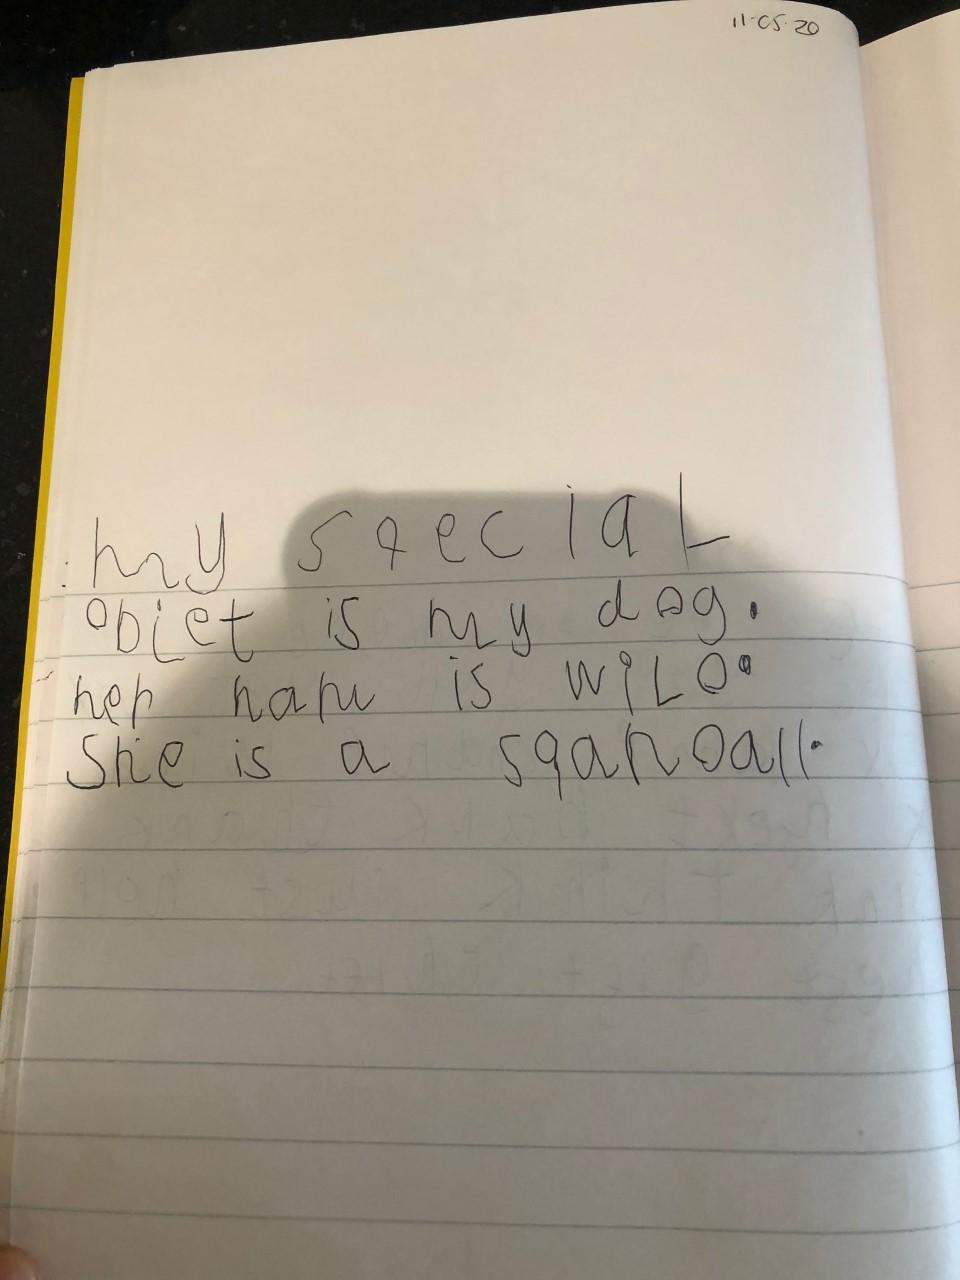 11-05-20
my sqecial
objet is my dog.
her name is wilo.
She is a sqanoall.